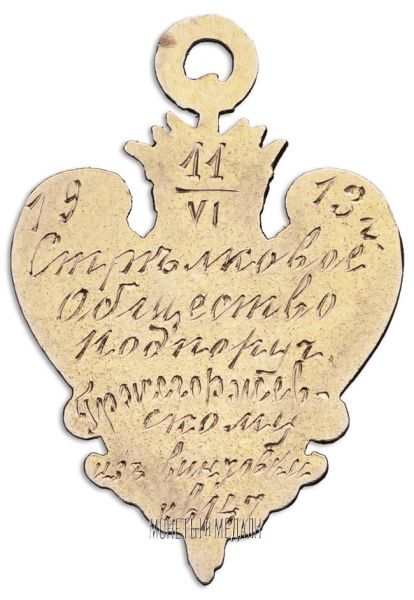 11
VI
19 13 г.
Стрѣлковое
Общество
подпоруч.
скому
изъ винтовки
МОНЕТЫ И МЕДАЛИ